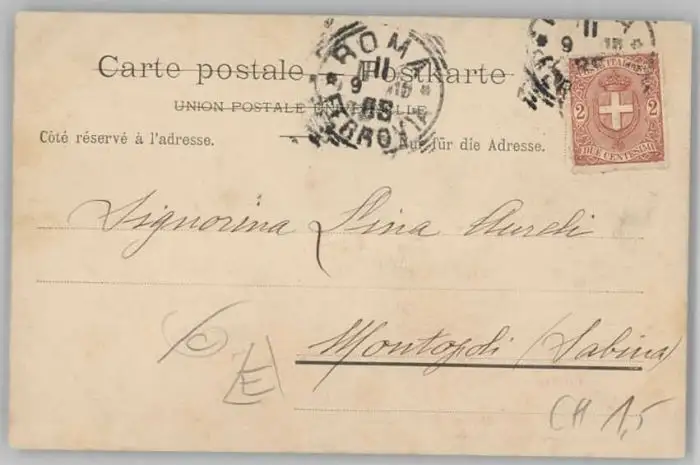 Carte postale. Postkarte
UNION POSTALE UNIVERSELLE
Côté réservé à l'adresse.
Nur für die Adresse.
ROMA
11
9
FERROVIA
11
9
2 2
DUE CENTESIMI
Signorina Lina Aureli
Montopoli (Sabina)
CH 1,5